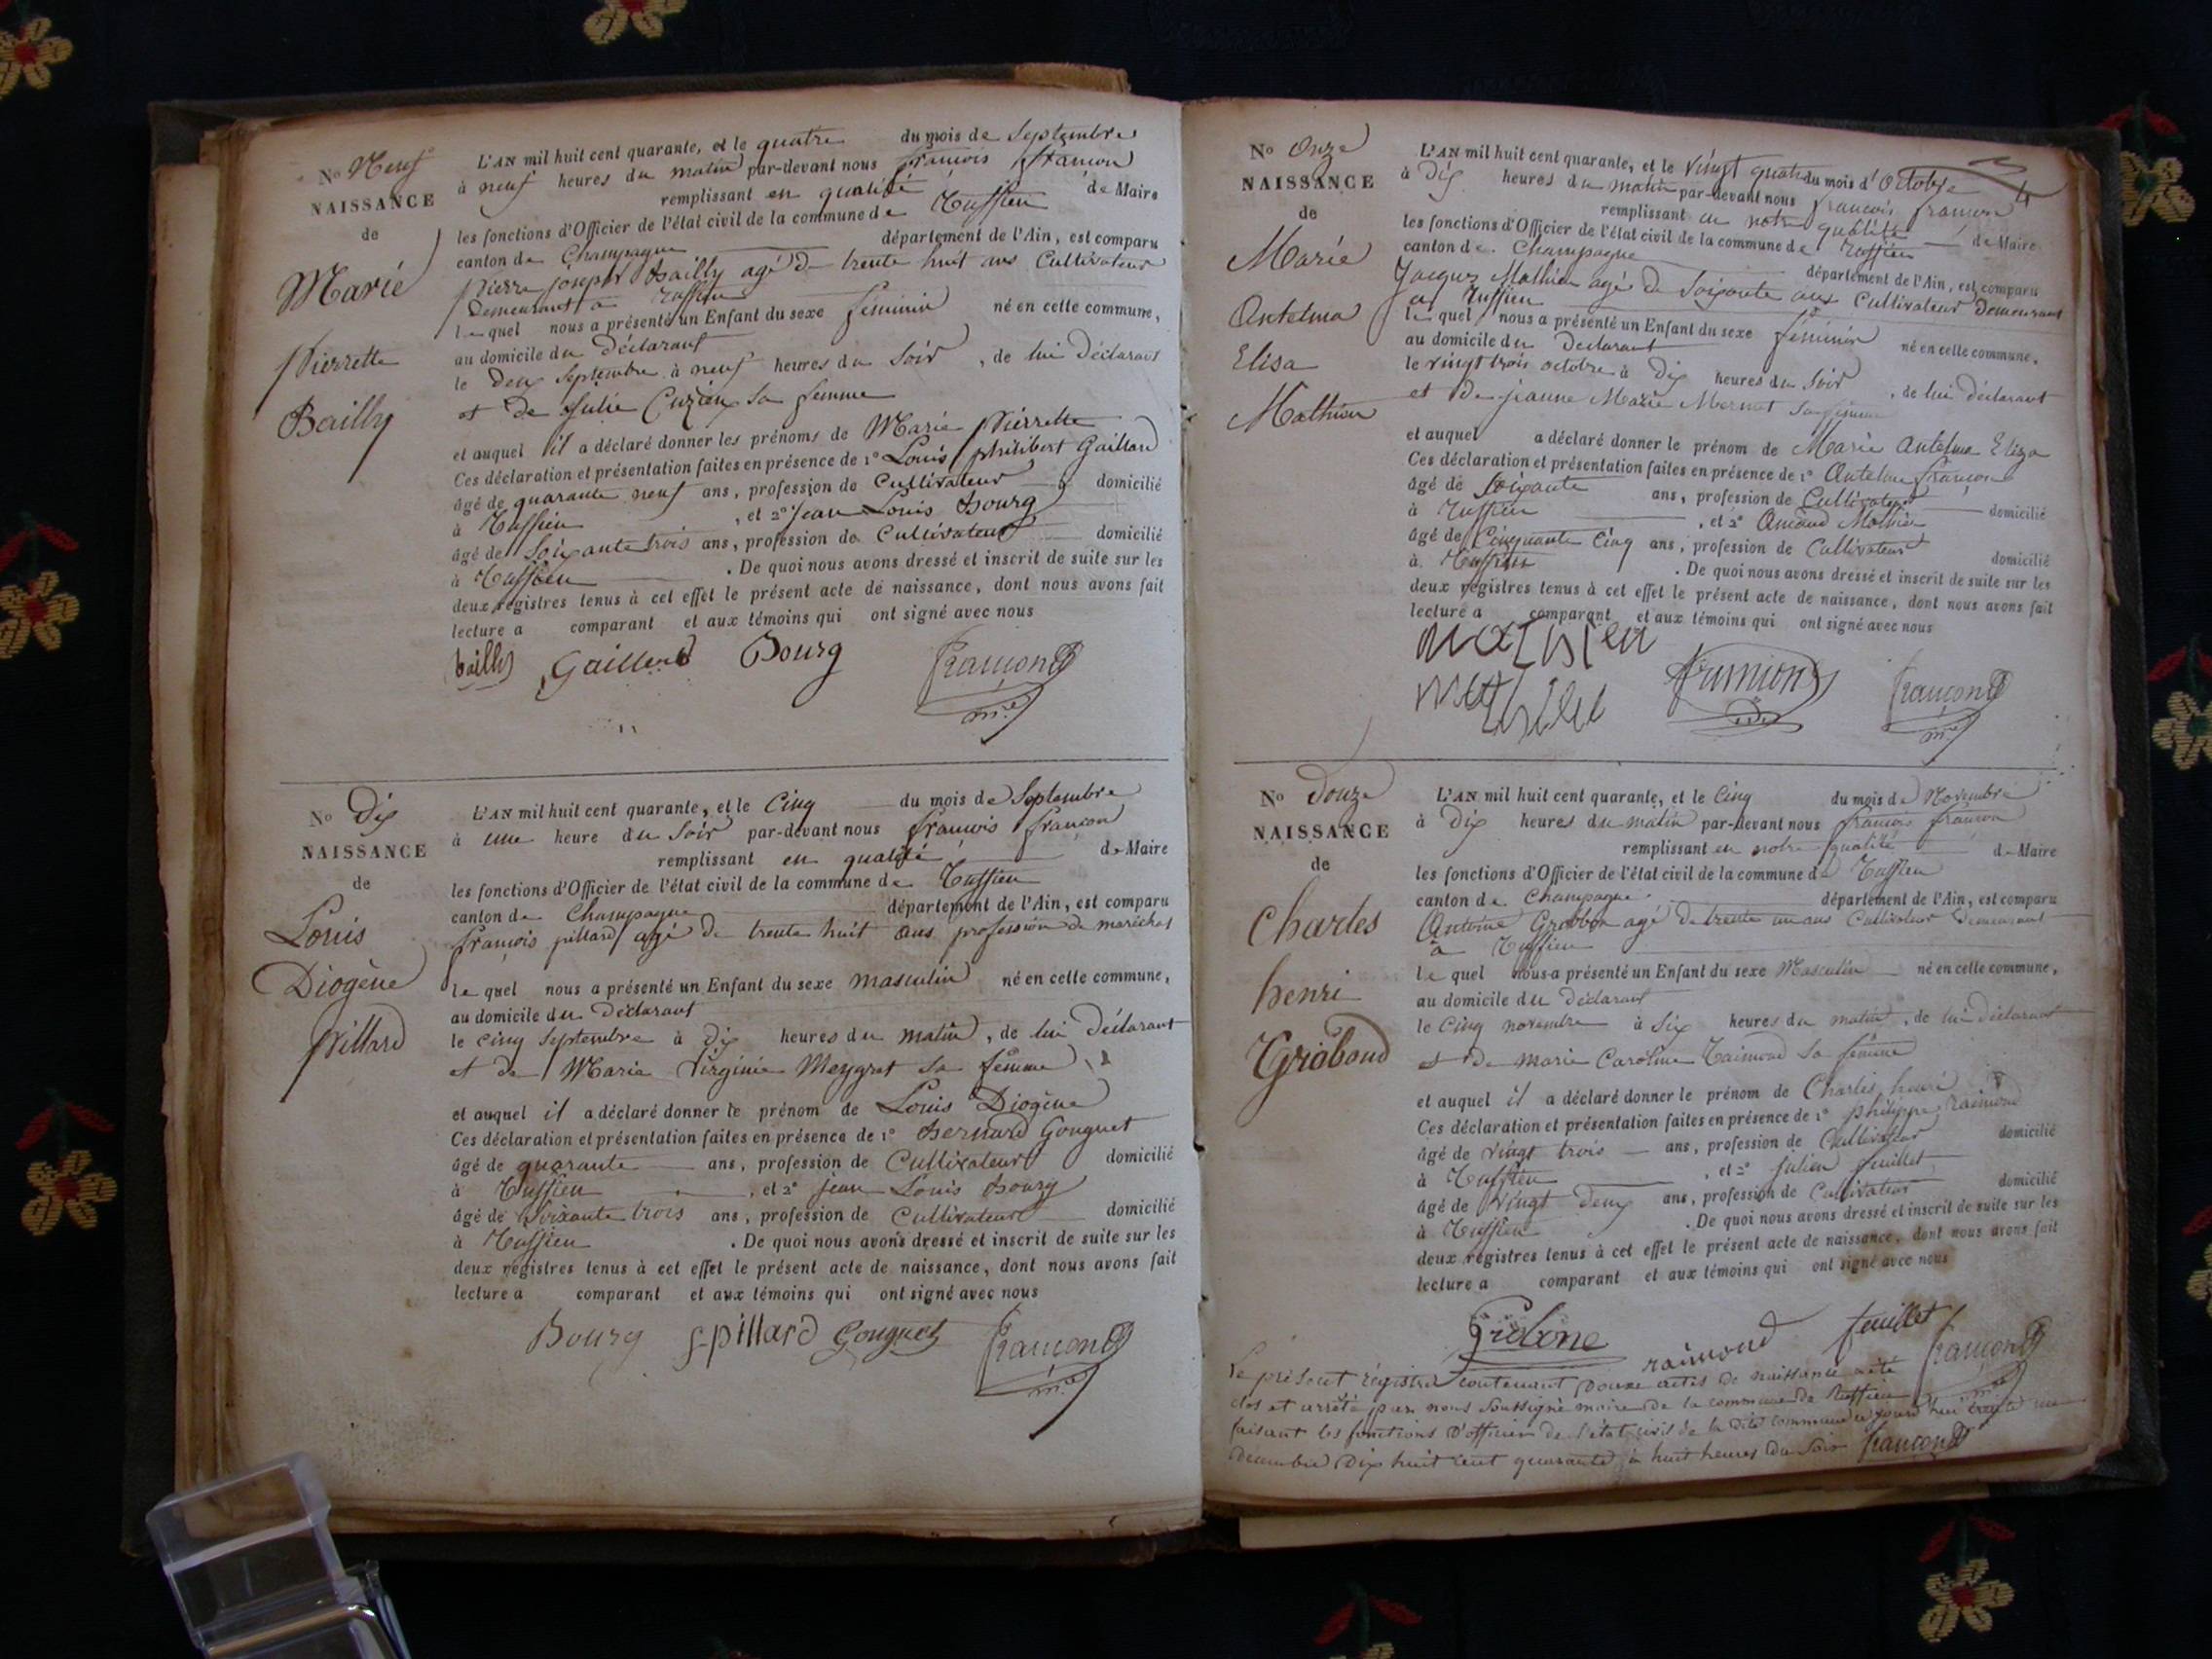 No Neuf
NAISSANCE
de
Marie
Pierrette
Bailly
L'AN mil huit cent quarante, et le quatre du mois de Septembre
à neuf heures du matin par-devant nous françois françon
remplissant en qualité de Maire
les fonctions d'Officier de l'état civil de la commune de Ruffieu
canton de Champagne département de l'Ain, est comparu
Pierre joseph Bailly agé de trente huit ans Cultivateur
Demeurant à Ruffieu
lequel nous a présenté un Enfant du sexe féminin né en cette commune,
au domicile du Déclarant
le deux Septembre à neuf heures du Soir, de lui Déclarant
et de Julie Cuzieu Sa femme
et auquel il a déclaré donner les prénoms de Marie Pierrette
Ces déclaration et présentation faites en présence de 1° Louis philibert Gaillard
âgé de quarante neuf ans, profession de Cultivateur domicilié
à Ruffieu, et 2° Jean Louis Bourg
âgé de Soixante trois ans, profession de Cultivateur domicilié
à Ruffieu. De quoi nous avons dressé et inscrit de suite sur les
deux registres tenus à cet effet le présent acte de naissance, dont nous avons fait
lecture a comparant et aux témoins qui ont signé avec nous
bailly Gaillard Bourg françon
m.re
No Dix
NAISSANCE
de
Louis
Diogène
Pillard
L'AN mil huit cent quarante, et le Cinq du mois de Septembre
à une heure du Soir par-devant nous françois françon
remplissant en qualité de Maire
les fonctions d'Officier de l'état civil de la commune de Ruffieu
canton de Champagne département de l'Ain, est comparu
françois pillard agé de trente huit ans profession de maréchal
lequel nous a présenté un Enfant du sexe masculin né en cette commune,
au domicile du Déclarant
le cinq Septembre à Dix heures du matin, de lui Déclarant
et de Marie Virginie Meygret Sa femme
et auquel il a déclaré donner le prénom de Louis Diogène
Ces déclaration et présentation faites en présence de 1° Bernard Gouguet
âgé de quarante ans, profession de Cultivateur domicilié
à Ruffieu, et 2° jean Louis Bourg
âgé de Soixante trois ans, profession de Cultivateur domicilié
à Ruffieu. De quoi nous avons dressé et inscrit de suite sur les
deux registres tenus à cet effet le présent acte de naissance, dont nous avons fait
lecture a comparant et aux témoins qui ont signé avec nous
Bourg f pillard Gouguet françon
m.re
4
No Onze
NAISSANCE
de
Marie
Antelma
Elisa
Mathieu
L'AN mil huit cent quarante, et le Vingt quatre du mois d'Octobre
à Dix heures du matin par-devant nous françois françon
remplissant en notre qualité de Maire
les fonctions d'Officier de l'état civil de la commune de Ruffieu
canton de Champagne département de l'Ain, est comparu
Jacques Mathieu agé de Soixante ans Cultivateur Demeurant
à Ruffieu
lequel nous a présenté un Enfant du sexe féminin né en cette commune,
au domicile du Déclarant
le vingt trois octobre à Dix heures du Soir, de lui déclarant
et de jeanne Marie Mornet Sa femme
et auquel a déclaré donner le prénom de Marie Antelma Eliza
Ces déclaration et présentation faites en présence de 1° Antelme françon
âgé de Soixante ans, profession de Cultivateur domicilié
à Ruffieu, et 2° Mathieu
âgé de Cinquante Cinq ans, profession de Cultivateur domicilié
à Ruffieu. De quoi nous avons dressé et inscrit de suite sur les
deux registres tenus à cet effet le présent acte de naissance, dont nous avons fait
lecture a comparant et aux témoins qui ont signé avec nous
mathieu
mathieu françon françon
m.re
No Douze
NAISSANCE
de
Charles
henri
Grabond
L'AN mil huit cent quarante, et le Cinq du mois de Novembre
à Dix heures du matin par-devant nous françois françon
remplissant en notre qualité de Maire
les fonctions d'Officier de l'état civil de la commune de Ruffieu
canton de Champagne département de l'Ain, est comparu
Antoine agé de trente un ans Cultivateur Demeurant
à Ruffieu
lequel nous a présenté un Enfant du sexe Masculin né en cette commune,
au domicile du Déclarant
le Cinq novembre à Six heures du matin, de lui déclarant
et de marie Caroline Raimond Sa femme
et auquel il a déclaré donner le prénom de Charles henri
Ces déclaration et présentation faites en présence de 1° philippe Raimond
âgé de Vingt trois ans, profession de Cultivateur domicilié
à Ruffieu, et 2° Julien feuillet
âgé de Vingt Deux ans, profession de Cultivateur domicilié
à Ruffieu. De quoi nous avons dressé et inscrit de suite sur les
deux registres tenus à cet effet le présent acte de naissance, dont nous avons fait
lecture a comparant et aux témoins qui ont signé avec nous
raimond feuillet françon
m.re
Le présent régistre contenant Douze actes de naissance a été
clos et arrêté par nous Soussigné maire de la commune de Ruffieu
faisant les fonctions D'officier de l'état civil de la dite commune ce jourd'hui trente un
décembre Dix huit cent quarante à huit heures du Soir françon